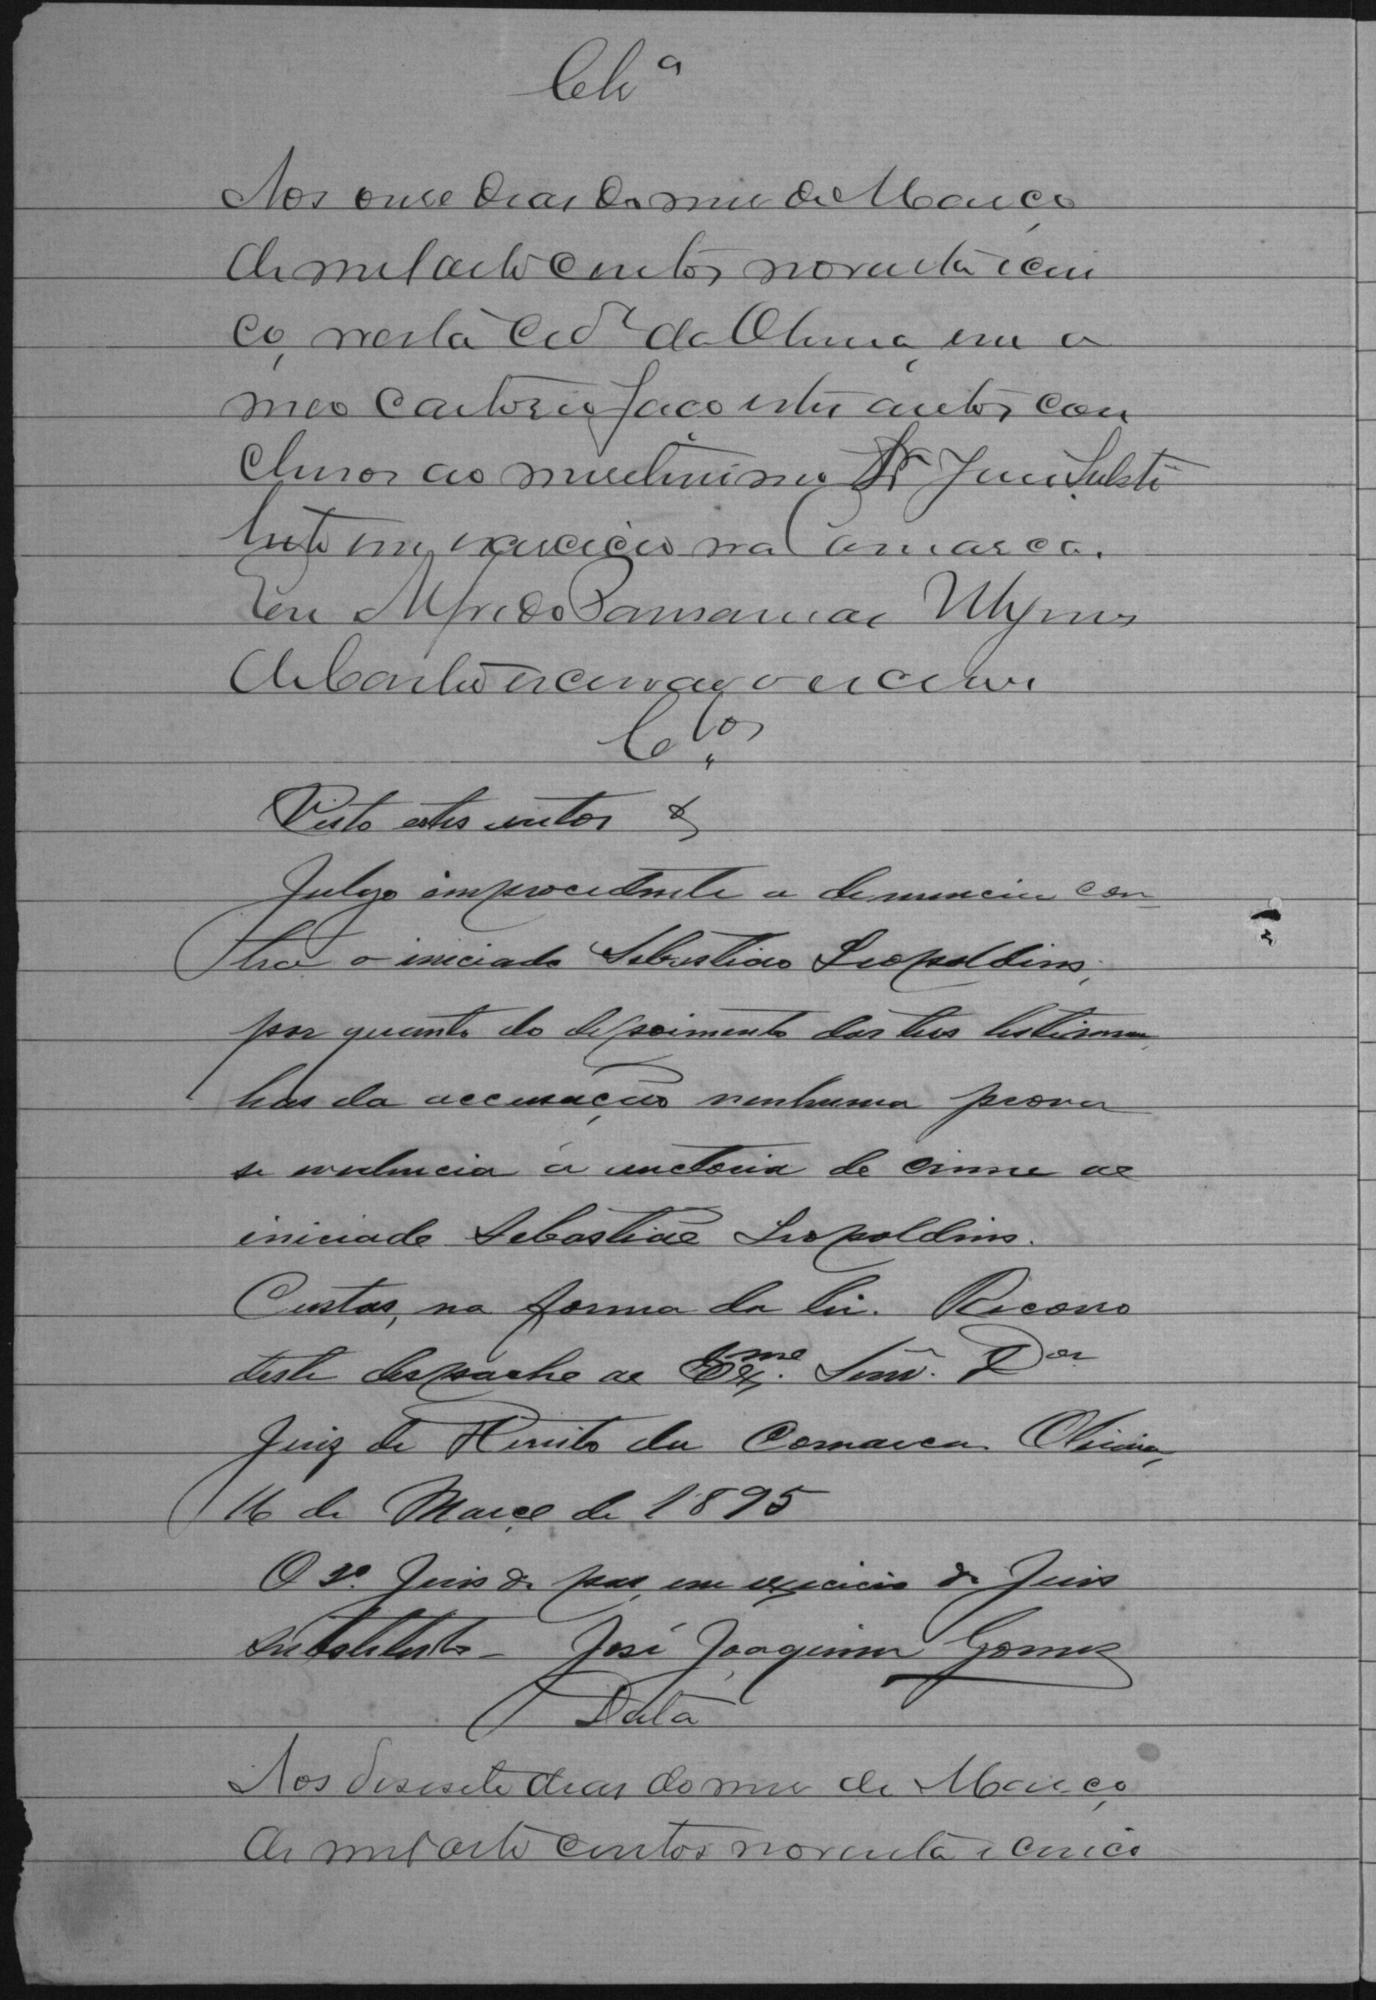 Cls.ª
Aos onse dias do mes de Março
de mil oito centos noventa e cin
co, nesta Cid.e de Oliveira, em o
meo Cartorio faço estes autos con
clusos ao meritissimo Dr Juis Substi
tuto em exercicio na Comarca.
Eu Alfredo
de Castro escrivão o escrevi
Cl.os
Visto estes autos &
Julgo improcedente a denuncia con-
tra o iniciado Sebastião Leopoldino,
por quanto do depoimento das tres testimun
has da accusação nenhuma prova
se evidencia a auctoria de crime ao
iniciado Sebastião Leopoldino.
Custas, na forma da lei. Recorro
deste despacho ao Ex.mo Senr. D.or
Juiz de Direito da Comarca. Oliveira,
16 de Março de 1895
O 3º Juis de pas, em exercicio de Juis
substituto - José Joaquim Gomes
Data
Aos desesete dias do mes de Março
de mil oito centos noventa e cinco